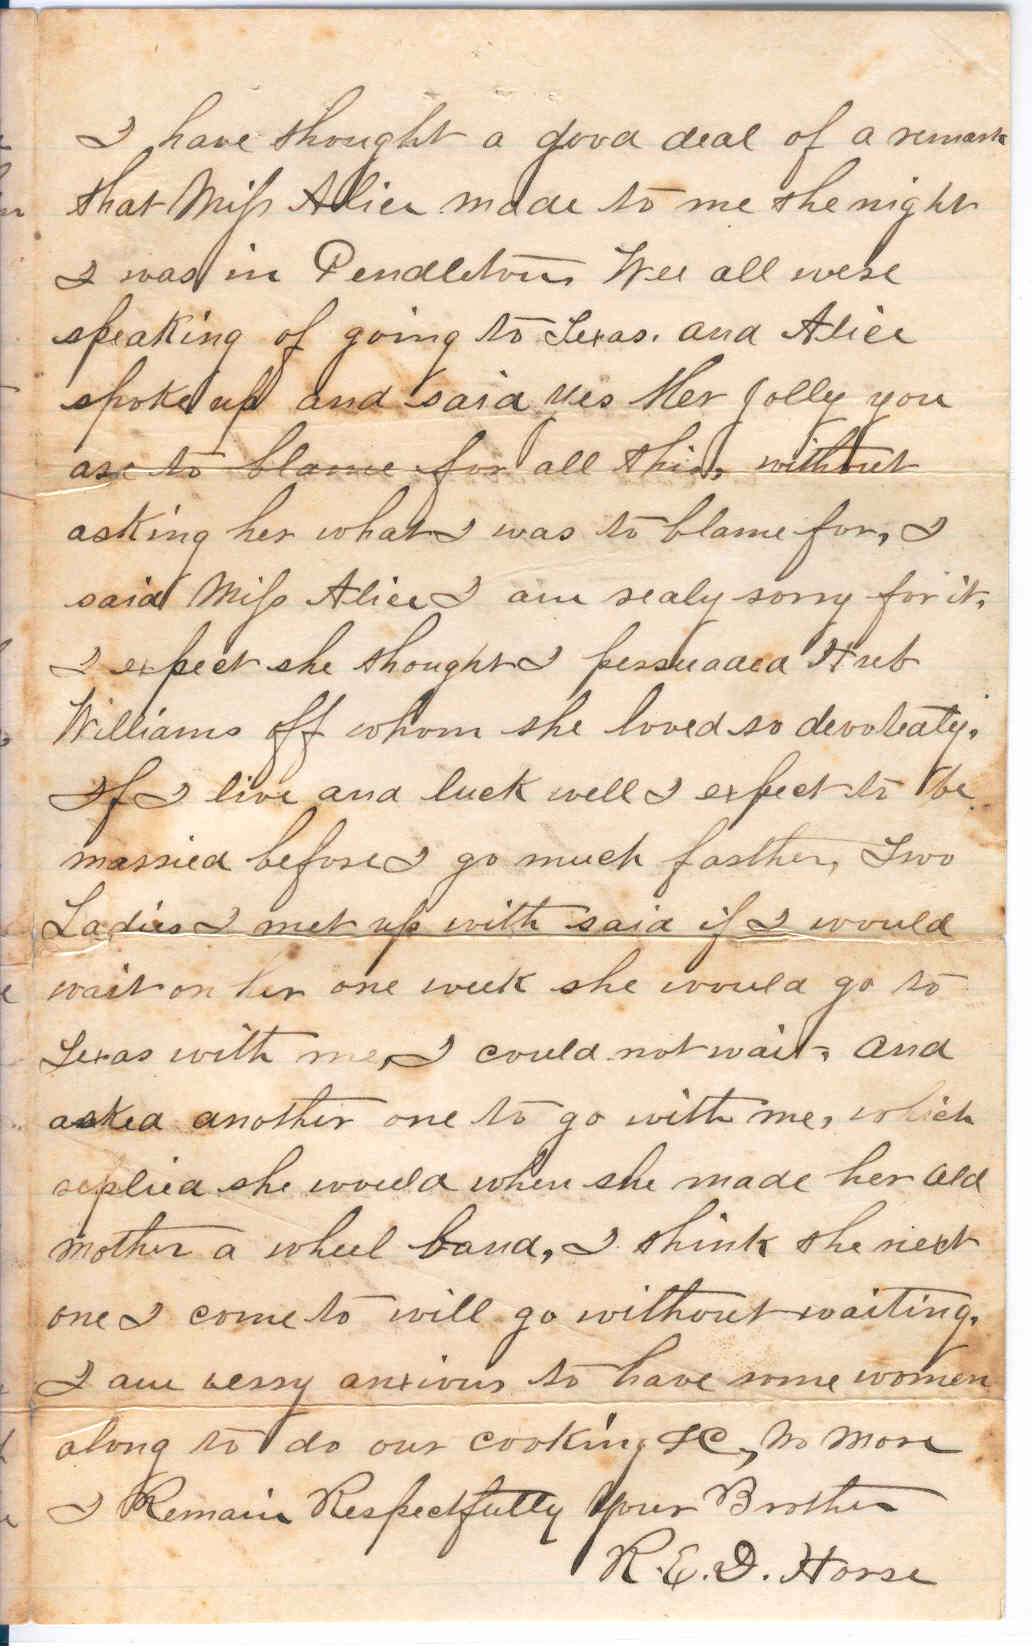 I have thought a good deal of a remark
that Miss Alice made to me the night
I was in Pendleton, Wee all were
speaking of going to Texas. and Alice
spoke up and said yes Mer Jolly you
are to blame for all this, without
asking her what I was to blame for, I
said Miss Alice I am realy sorry for it,
I expect she thought I persuaded Hub
Williams off whom she loved so devoteatly.
If I live and luck well I expect to be
married before I go much farther, Two
Ladies I met up with said if I would
wait on her one week she would go to
Texas with me, I could not wait, and
asked another one to go with me, which
replied she would when she made her old
mother a wheel band, I think the next
one I come to will go without waiting.
I am verry anxious to have some women
along to do our cooking &C, No more
I Remain Respectfully Your Brother
R. E. D. Horse